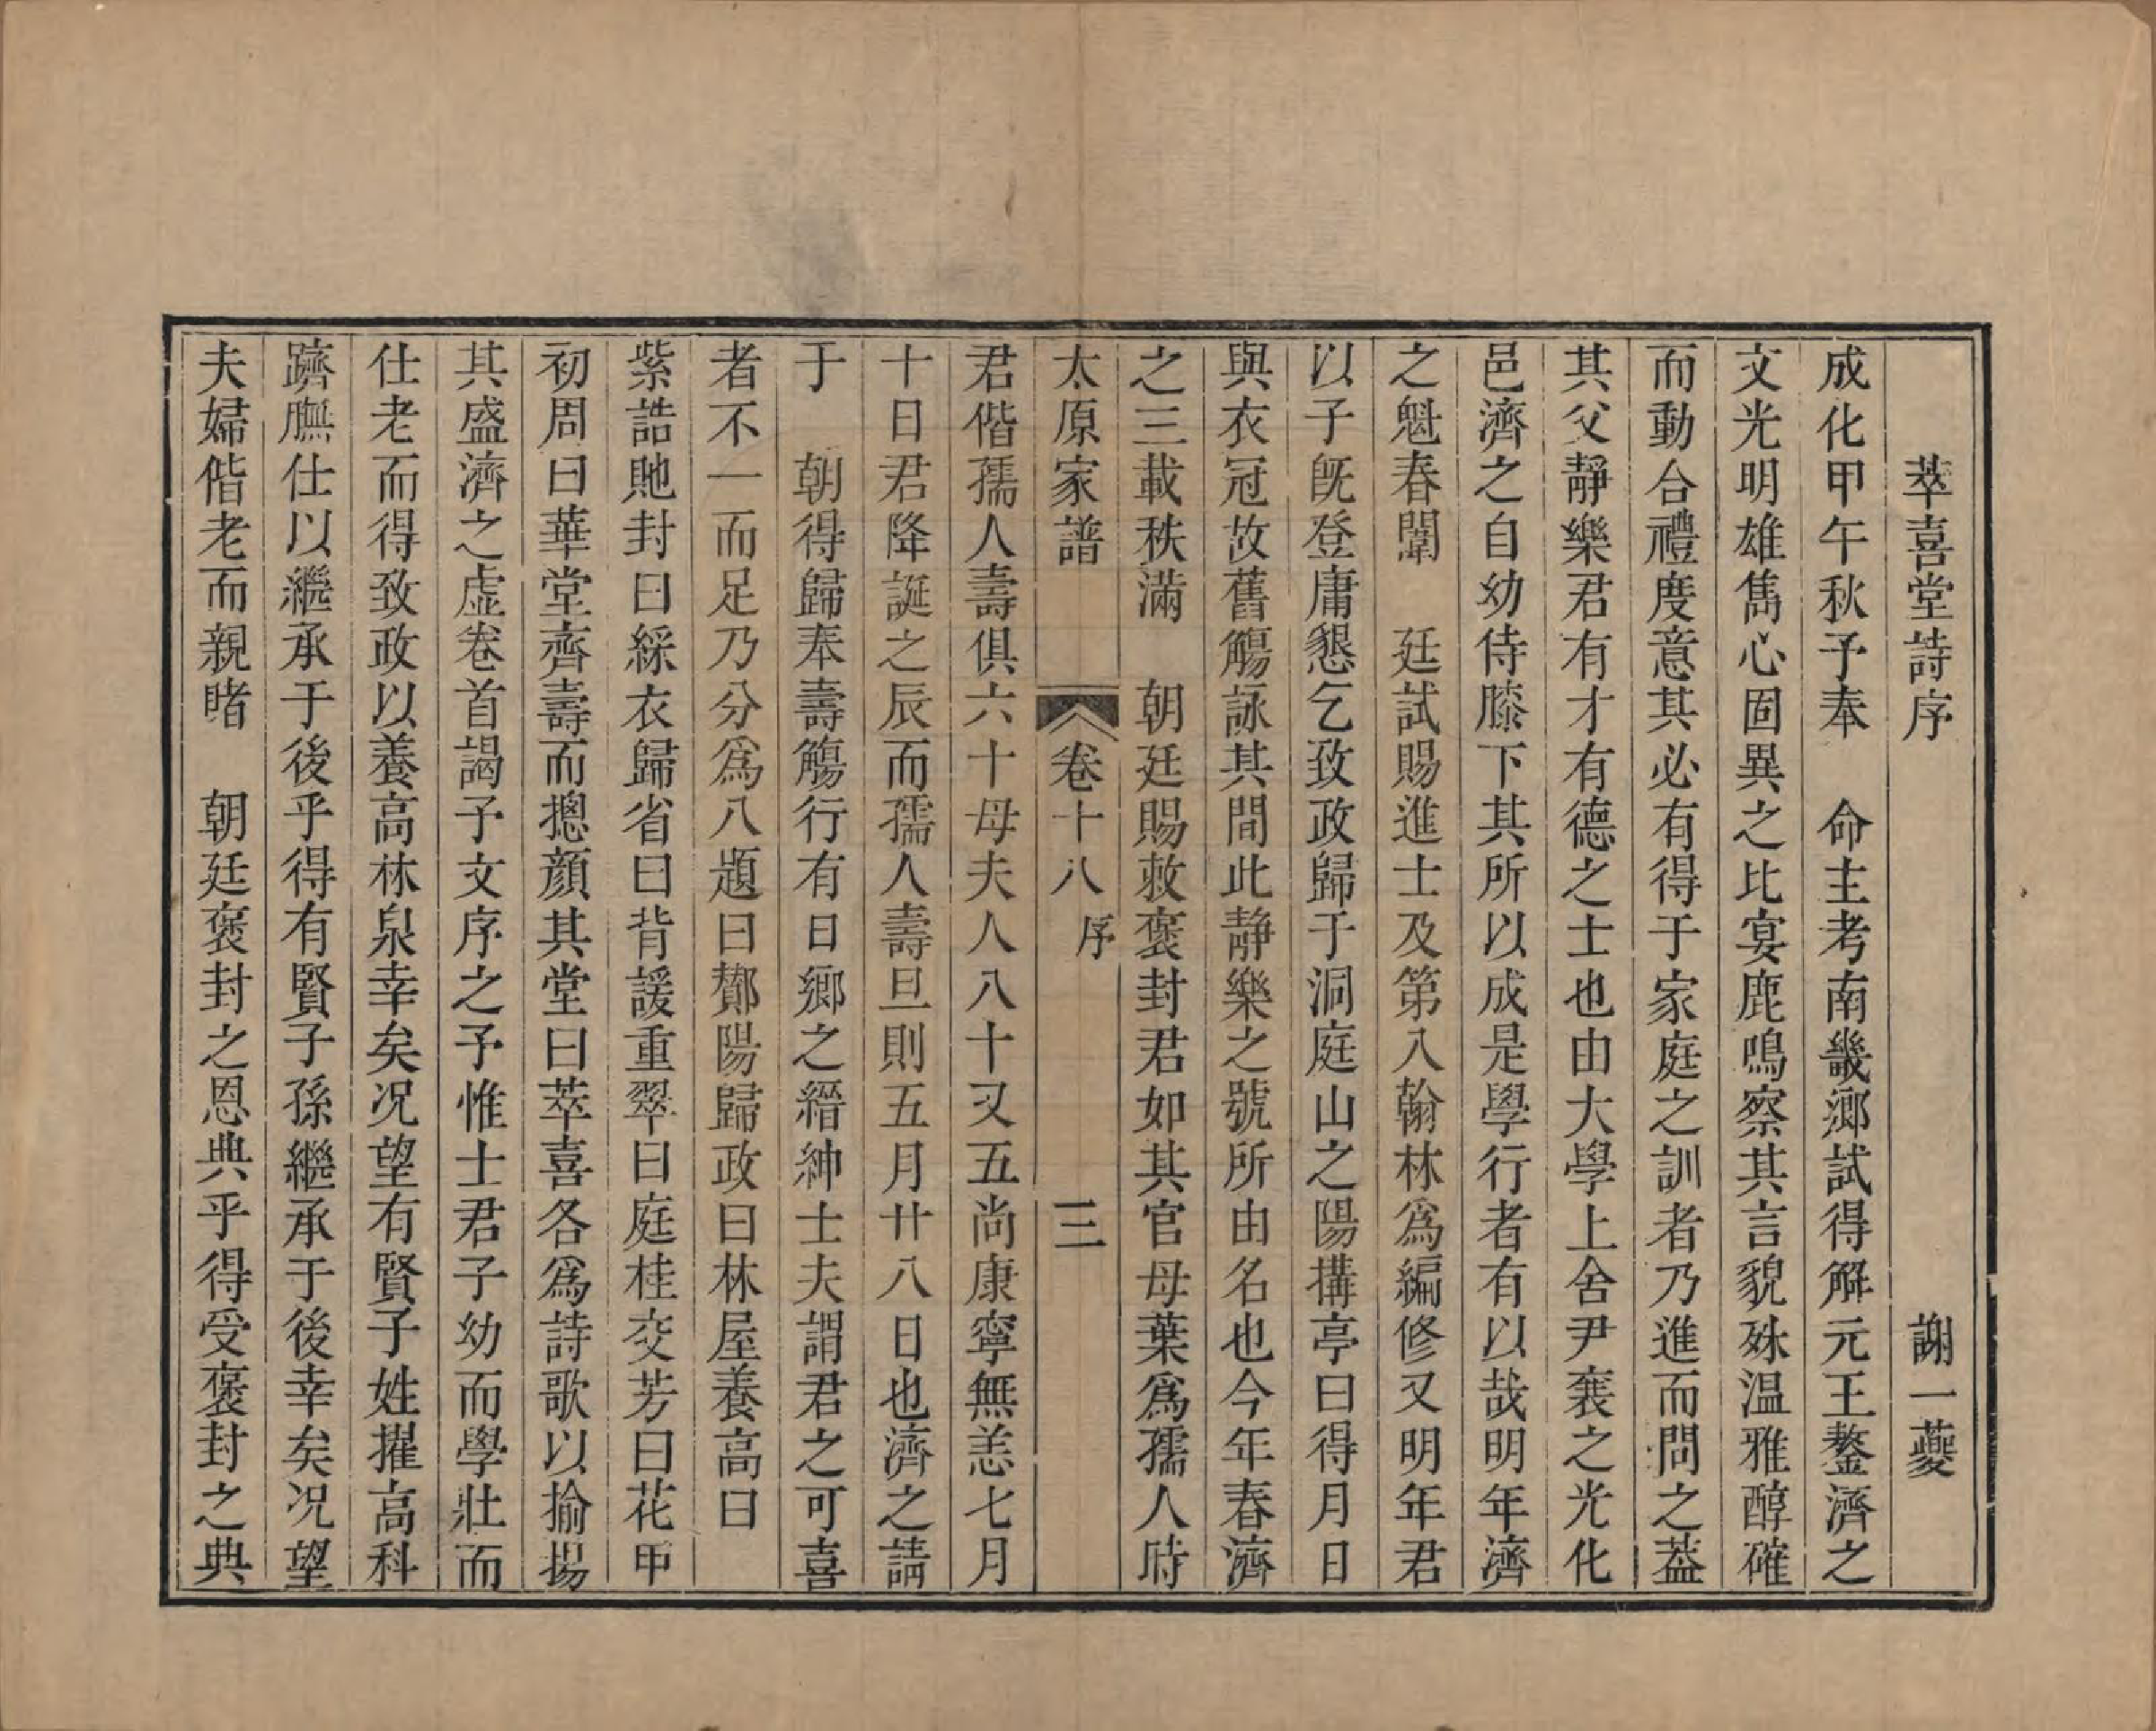 萃喜堂詩序　謝一夔
成化甲午秋予奉　命主考南畿鄉試得解元王鏊濟之
文光明雄雋心固異之比宴鹿鳴察其言貌姝温雅醇確
而動合禮度意其必有得于家庭之訓者乃進而問之葢
其父靜樂君有才有德之士也由大學上舍尹襄之光化
邑濟之自幼侍膝下其所以成是學行者有以哉明年濟
之魁春闈　廷試賜進士及第入翰林爲編修又明年君
以子旣登庸懇乞致政歸于洞庭山之陽搆亭曰得月日
與衣冠故舊觴詠其間此靜樂之號所由名也今年春濟
之三載秩滿　朝廷賜敕褒封君如其官母葉爲孺人時
太原家譜　卷十八　序　三
君偕孺人壽俱六十母夫人八十又五尚康寧無恙七月
十日君降誕之辰而孺人壽旦則五月廿八日也濟之請
于　朝得歸奉壽觴行有日鄉之縉紳士夫謂君之可喜
者不一而足乃分爲八題曰鄼陽歸政曰林屋養高曰
紫誥貤封曰綵衣歸省曰背諼重翠曰庭桂交芳曰花甲
初周曰華堂齊壽而摠顏其堂曰萃喜各爲詩歌以揄揚
其盛濟之虚卷首謁予文序之予惟士君子幼而學壯而
仕老而得致政以養高林泉幸矣况望有賢子姓擢高科
躋膴仕以繼承于後乎得有賢子孫繼承于後幸矣况望
夫婦偕老而親睹　朝廷褒封之恩典乎得受褒封之典